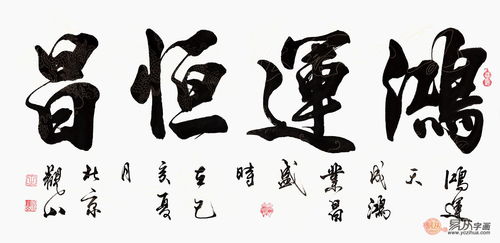 鴻運恒昌
鴻運
天
成鴻
業昌
盛
時
在己
亥夏
月
於京
觀山
易从字画
www.yczihua.com